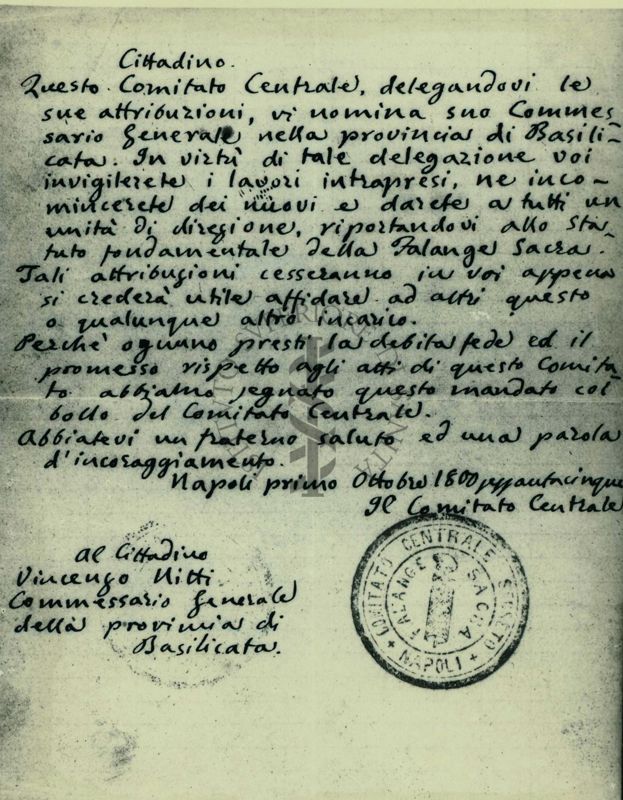 Cittadino.
Questo Comitato Centrale, delegandovi le
sue attribuzioni, vi nomina suo Commes
sario Generale nella provincia di Basili-
cata. In virtù di tale delegazione voi
invigilerete i lavori intrapresi, ne inco-
mincerete dei nuovi e darete a tutti un
unità di direzione, riportandovi allo Sta-
tuto fondamentale della Falange Sacra.
Tali attribuzioni cesseranno in voi appena
si crederà utile affidare ad altri questo
o qualunque altro incarico.
Perchè ognuno presti la debita fede ed il
promesso rispetto agli atti di questo Comita-
to abbiamo segnato questo mandato col
bollo del Comitato Centrale.
Abbiatevi un fraterno saluto ed una parola
d'incoraggiamento.
Napoli primo Ottobre 1800
Il Comitato Centrale
Al Cittadino
Vincenzo Nitti
Commessario Generale
della provincia di
Basilicata.
COMITATO CENTRALE SEGRETO
NAPOLI
FALANGE SACRA